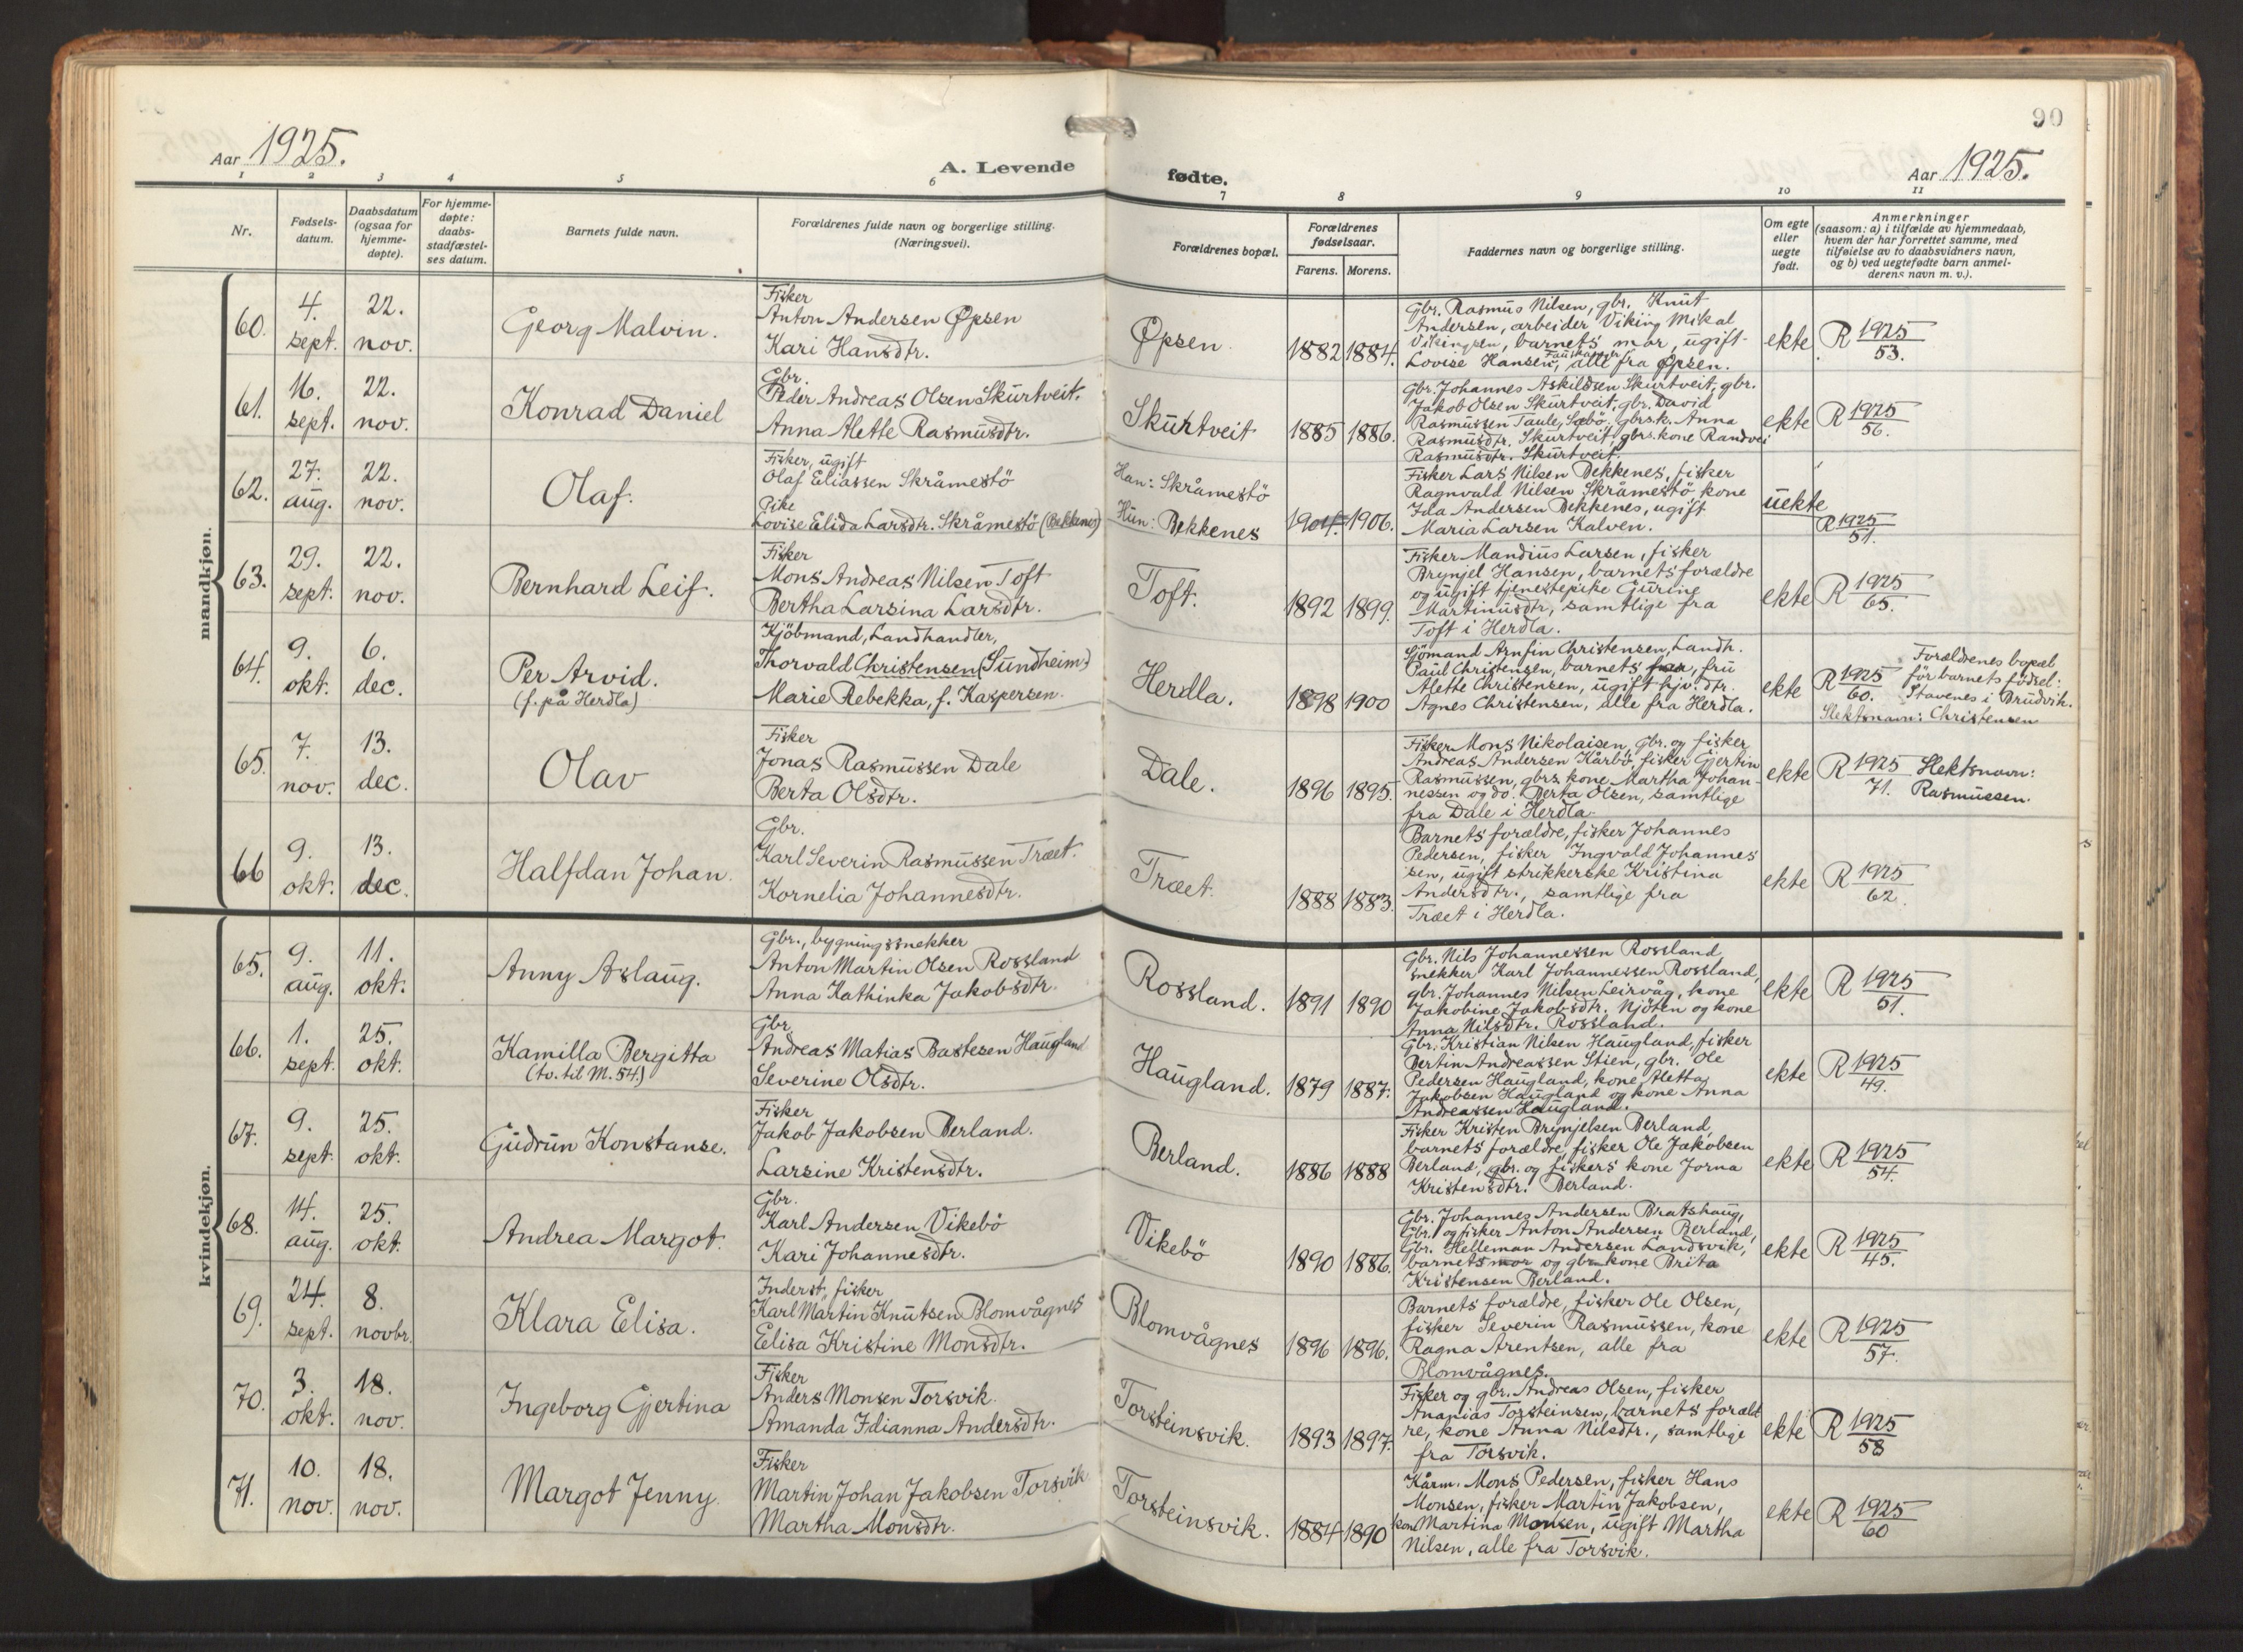 90
Aar 1925.
A. Levende fødte.
Aar 1925.
1 2 3 4 5 6 7 8 9 10 11
Nr.
Fødsels-
datum.
Daabsdatum
(ogsaa for
hjemme-
døpte).
For hjemme-
døpte:
daabs-
stadfæstel-
ses datum.
Barnets fulde navn.
Forældrenes fulde navn og borgerlige stilling.
(Næringsvei).
Forældrenes bopæl.
Forældrenes
fødselsaar.
Farens. Morens.
Faddernes navn og borgerlige stilling.
Om egte
eller
uegte
født.
Anmerkninger
(saasom: a) i tilfælde av hjemmedaab,
hvem der har forrettet samme, med
tilføielse av to daabsvidners navn,
og b) ved uegtefødte barn anmel-
derens navn m. v.).
mandkjøn.
60.
4.
sept.
22.
nov.
Georg Malvin.
Fisker
Anton Andersen Øpsen
Kari Hansdtr.
Øpsen
1882 1884.
Gbr. Rasmus Nilsen, gbr. Knut
Andersen, arbeider Viking Mikal
Vikingsen, barnets mor, ugift
Lovise Hansen, alle fra Øpsen.
ekte
R 1925
53.
61.
16.
sept.
22.
nov.
Konrad Daniel
Gbr.
Peder Andreas Olsen Skurtveit.
Anna Alette Rasmusdtr.
Skurtveit
1885 1886.
Gbr. Johannes Askildsen Skurtveit, gbr.
Jakob Olsen Skurtveit, gbr. David
Rasmussen Taule, Sæbö, gbrs.k. Anna
Rasmusdtr. Skurtveit, gbrs. kone Randvei
Rasmusdtr. Skurtveit.
ekte
R 1925
56.
62.
27.
aug.
22.
nov.
Olaf.
Fisker, ugift
Olaf Eliassen Skråmestö
Pike
Lovise Elida Larsdtr. Skråmestö (Bekkenes)
Han: Skråmestö
Hun: Bekkenes
1904. 1906.
Fisker Lars Nilsen Bekkenes, fisker
Ragnvald Nilsen Skråmestö, kone
Ida Andersen Bekkenes, ugift
Maria Larsen Kalven.
uekte
R 1925
51.
63.
29.
sept.
22.
nov.
Bernhard Leif.
Fisker
Mons Andreas Nilsen Toft
Bertha Larsina Larsdtr.
Toft.
1892 1899.
Fisker Mandius Larsen, fisker
Brynjel Hansen, barnets forældre
og ugift tjenestepike Gurine
Martinusdtr, samtlige fra
Toft i Herdla.
ekte
R 1925
65.
64.
9.
okt.
6.
dec.
Per Arvid.
(f. på Herdla)
Kjöbmand, Landhandler,
Thorvald Christensen (Sundheim)
Marie Rebekka, f. Kaspersen.
Herdla.
1898 1900
Sjömand Arnfin Christensen, Landh.
Paul Christensen, barnets far, fru
Alette Christensen, ugift hjv. dtr.
Agnes Christensen, alle fra Herdla.
ekte
R 1925
60.
Forældrenes bopæl
før barnets fødsel:
Stavenes i Brudvik.
Slektsnavn: Christensen
65.
7.
nov.
13.
dec.
Olav
Fisker
Jonas Rasmussen Dale
Berta Olsdtr.
Dale.
1896 1895.
Fisker Mons Nikolaisen, gbr. og fisker
Andreas Andersen Kårbö, fisker Gjertin
Rasmussen, gbrs. kone Martha Johan-
nessen og do. Berta Olsen, samtlige
fra Dale i Herdla.
ekte
R 1925
71.
Slektsnavn:
Rasmussen.
66
9.
okt.
13.
dec.
Halfdan Johan.
Gbr.
Karl Severin Rasmussen Træet.
Kornelia Johannesdtr.
Træet.
1888 1883.
Barnets forældre, fisker Johannes
Pedersen, fisker Ingvald Johannes
sen, ugift strikkerske Kristina
Andersdtr., samtlige fra
Træet i Herdla.
ekte
R 1925
62.
kvindekjøn.
65.
9.
aug.
11.
okt.
Anny Aslaug.
Gbr., bygningssnekker
Anton Martin Olsen Rossland
Anna Kathinka Jakobsdtr.
Rossland.
1891 1890
Gbr. Nils Johannessen Rossland,
snekker Karl Johannessen Rossland,
gbr. Johannes Nilsen Leirvåg, kone
Jakobine Jakobsdtr. Njöten og kone
Anna Nilsdtr. Rossland.
ekte
R 1925
51.
66.
1.
sept.
25.
okt.
Kamilla Bergitta
(tv. til M. 54.)
Gbr.
Andreas Matias Bastesen Haugland
Severine Olsdtr.
Haugland.
1879 1887.
Gbr. Kristian Nilsen Haugland, fisker
Bertin Andreassen Stien, gbr. Ole
Pedersen Haugland, kone Aletta
Jakobsen Haugland og kone Anna
Andreassen Haugland.
ekte
R 1925
49.
67.
9.
sept.
25.
okt.
Gudrun Konstanse.
Fisker
Jakob Jakobsen Berland.
Larsine Kristensdtr.
Berland.
1886 1888
Fisker Kristen Brynjelsen Berland,
barnets forældre, fisker Ole Jakobsen
Berland, gbr. og fiskers kone Jorna
Kristensdtr. Berland.
ekte
R 1925
54.
68.
14.
aug.
25.
okt.
Andrea Margot.
Gbr.
Karl Andersen Vikebö
Kari Johannesdtr.
Vikebö
1890 1886.
Gbr. Johannes Andersen Bratshaug,
Gbr. og fisker Anton Andersen Berland,
Gbr. Helleman Andersen Landsvik,
barnets mor og gbr. kone Brita
Kristensen Berland.
ekte
R 1925
45.
69.
24.
sept.
8.
novbr.
Klara Elisa.
Inderst, fisker
Karl Martin Knutsen Blomvågnes
Elisa Kristine Monsdtr.
Blomvågnes
1896 1896.
Barnets forældre, fisker Ole Olsen,
fisker Severin Rasmussen, kone
Ragna Arentsen, alle fra
Blomvågnes.
ekte
R 1925
57.
70.
3.
okt.
18.
nov.
Ingeborg Gjertina
Fisker
Anders Monsen Torsvik.
Amanda Idianna Andersdtr.
Torsteinsvik.
1893 1897.
Fisker og gbr. Andreas Olsen, fisker
Ananias Torsteinsen, barnets foræld
re, kone Anna Nilsdtr., samtlige
fra Torsvik.
ekte
R 1925
58
71.
10.
nov.
18.
nov.
Margot Jenny
Fisker
Martin Johan Jakobsen Torsvik
Martha Monsdtr.
Torsteinsvik.
1884 1890
Kårm. Mons Pedersen, fisker Hans
Monsen, fisker Martin Jakobsen,
kone Martina Monsen, ugift Martha
Nilsen, alle fra Torsvik.
ekte
R 1925
60